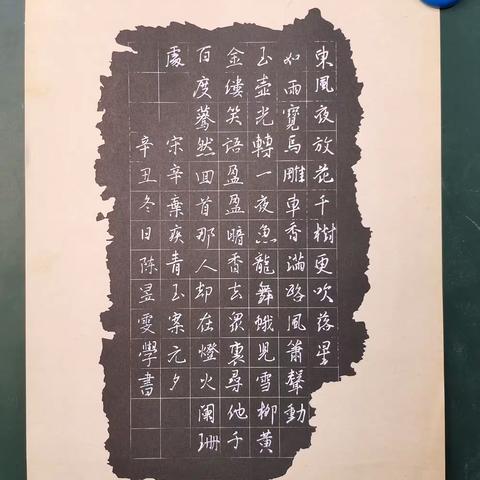 東風夜放花千樹更吹落星
如雨寶馬雕車香滿路風簫聲動
玉壺光轉一夜魚龍舞蛾兒雪柳黃
金缕笑語盈盈暗香去眾裏尋他千
百度驀然回首那人却在燈火阑珊
處
宋辛棄疾青玉案元夕
辛丑冬日陈昱雯學書